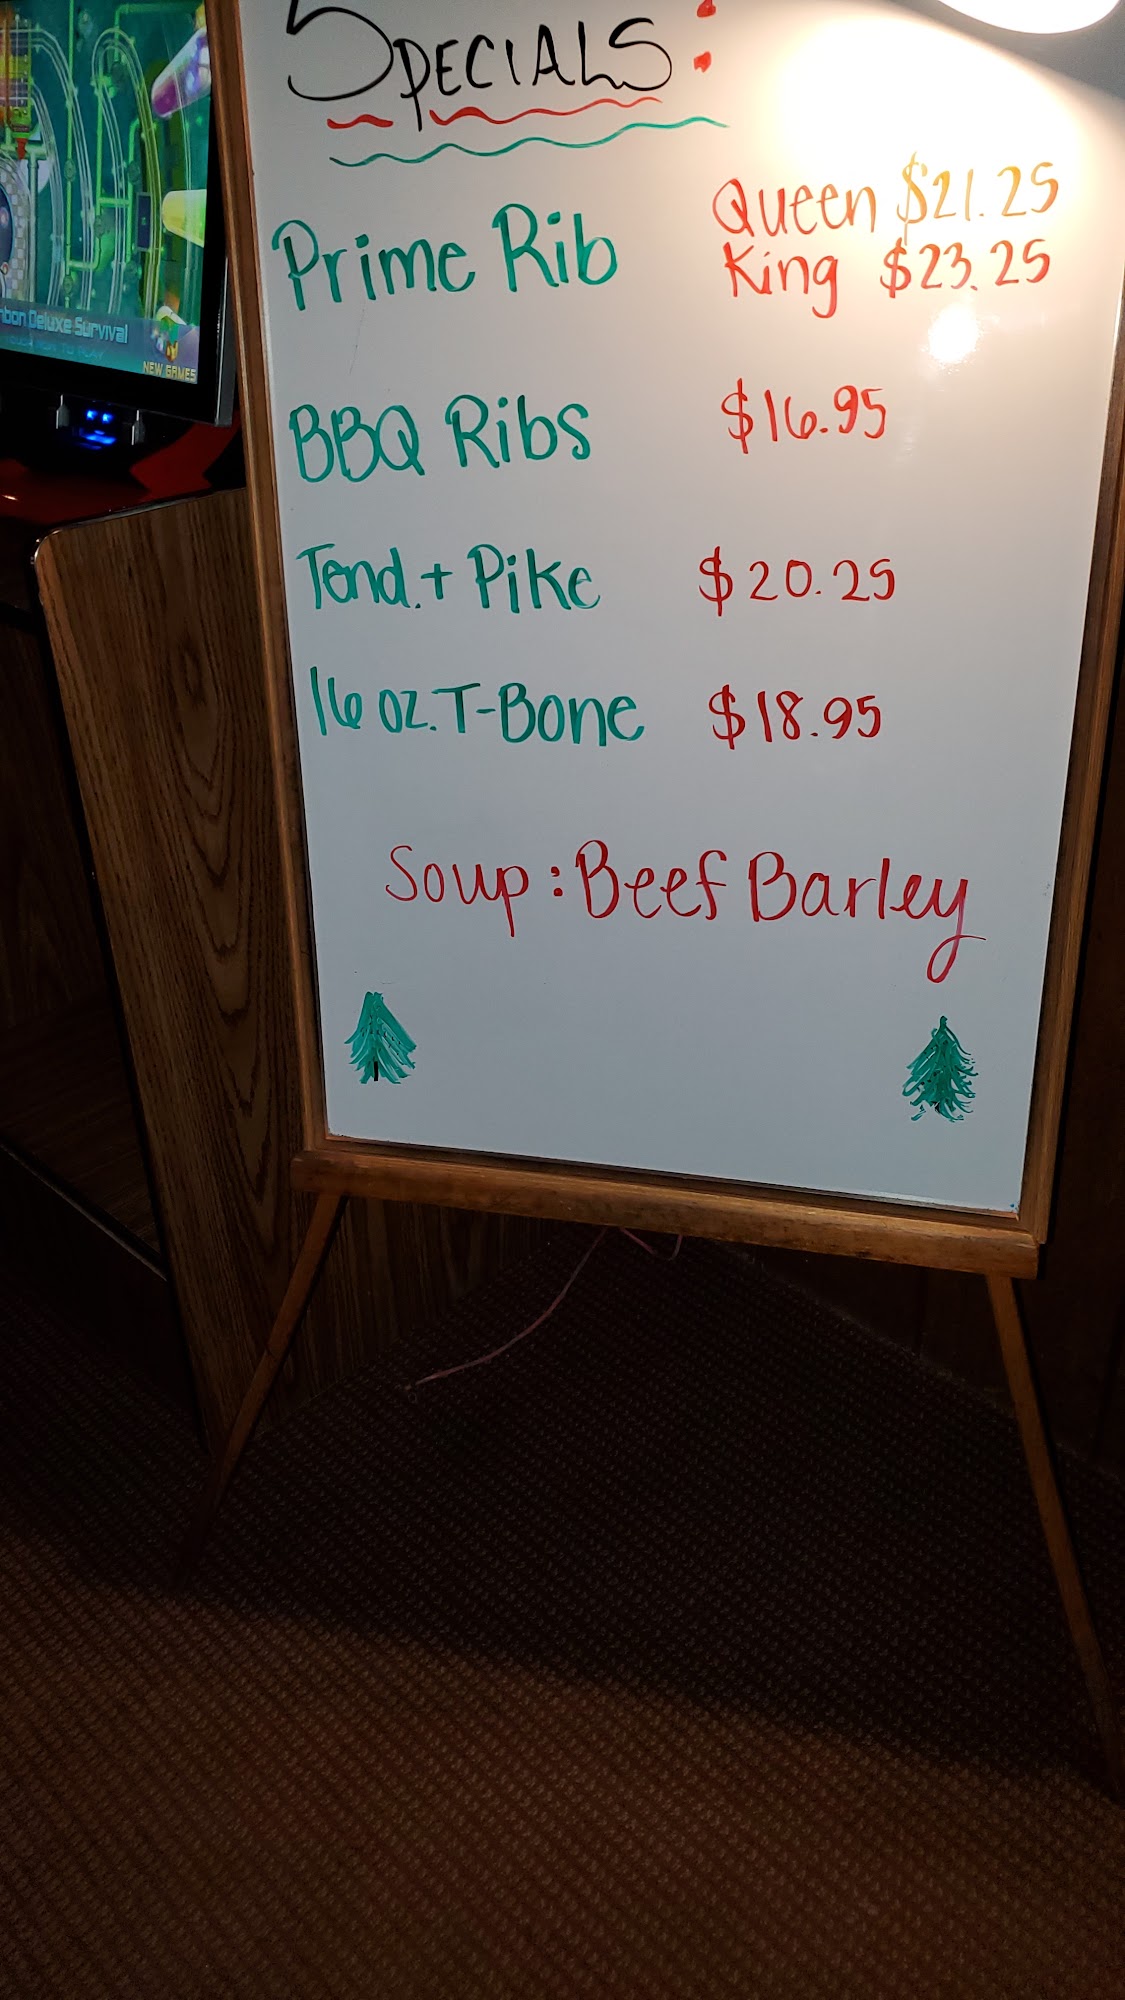 Specials:
Prime Rib Queen $21.25
King $23.25
BBQ Ribs $16.95
Tend.+ Pike $20.25
16 oz. T-Bone $18.95
Soup: Beef Barley
Deluxe Survival
NEW GAMES